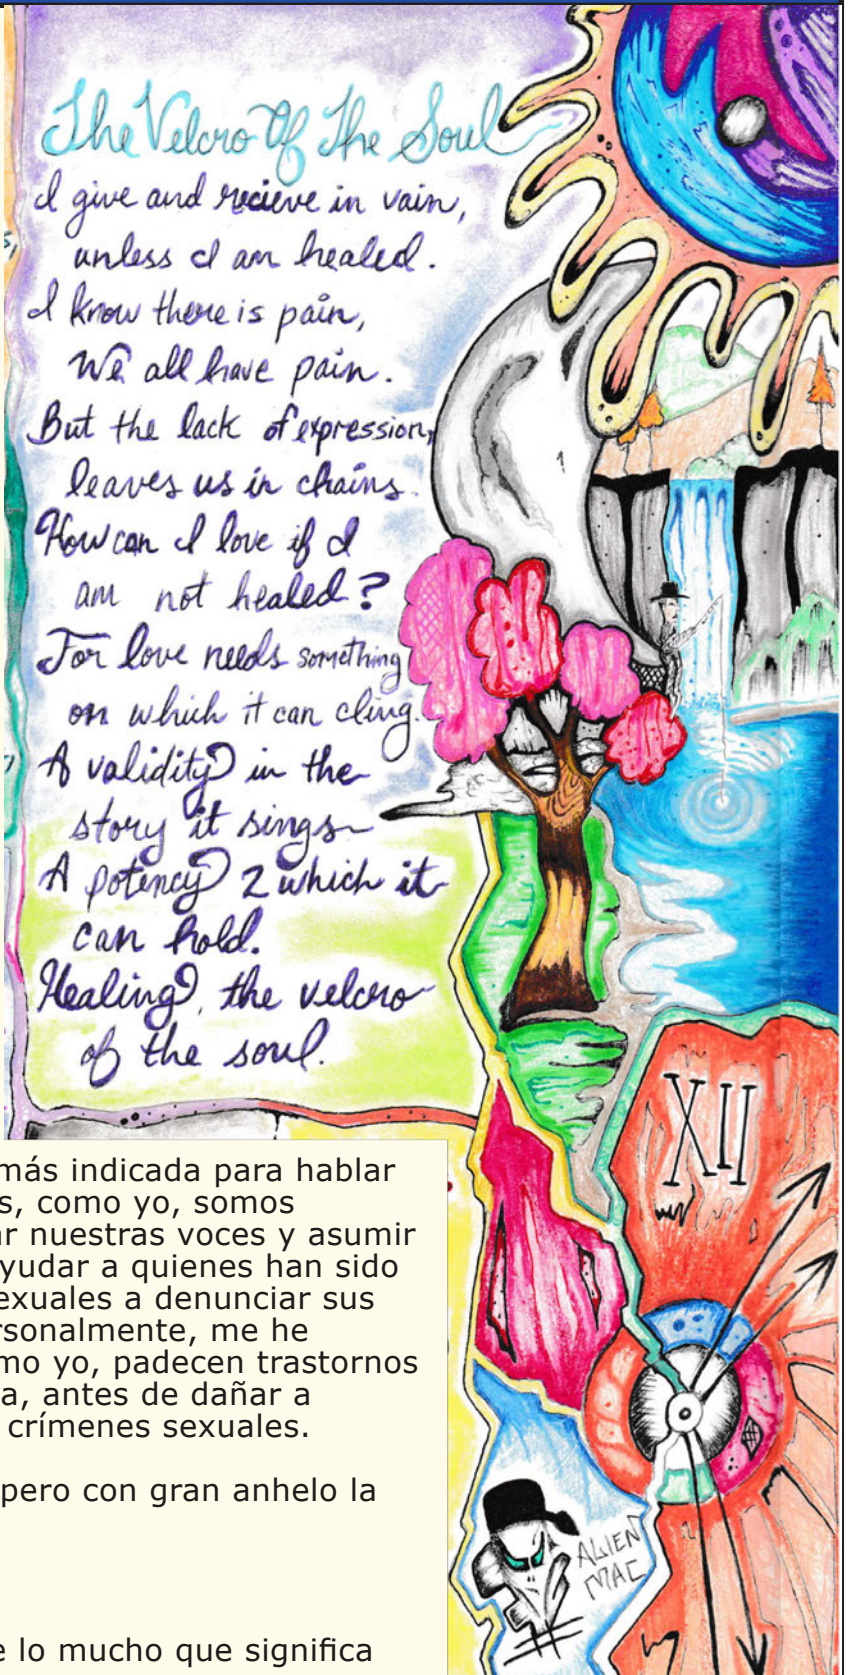 The Velcro Of The Soul
I give and recieve in vain,
unless I am healed.
I know there is pain,
We all have pain.
But the lack of expression,
leaves us in chains.
How can I love if I
am not healed?
For love needs something
on which it can cling.
A validity in the
story it sings
A potency 2 which it
can hold.
Healing, the velcro
of the soul.
XII
ALIEN
MAC
más indicada para hablar
s, como yo, somos
ar nuestras voces y asumir
yudar a quienes han sido
exuales a denunciar sus
rsonalmente, me he
mo yo, padecen trastornos
a, antes de dañar a
crímenes sexuales.
pero con gran anhelo la
e lo mucho que significa